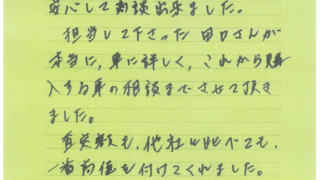 安心して商談出来ました。
担当して下さった田口さんが
本当に、車に詳しく、これから購
入する車の相談までさせて頂き
ました。
査定額も、他社と比べても、
一番高値を付けてくれました。